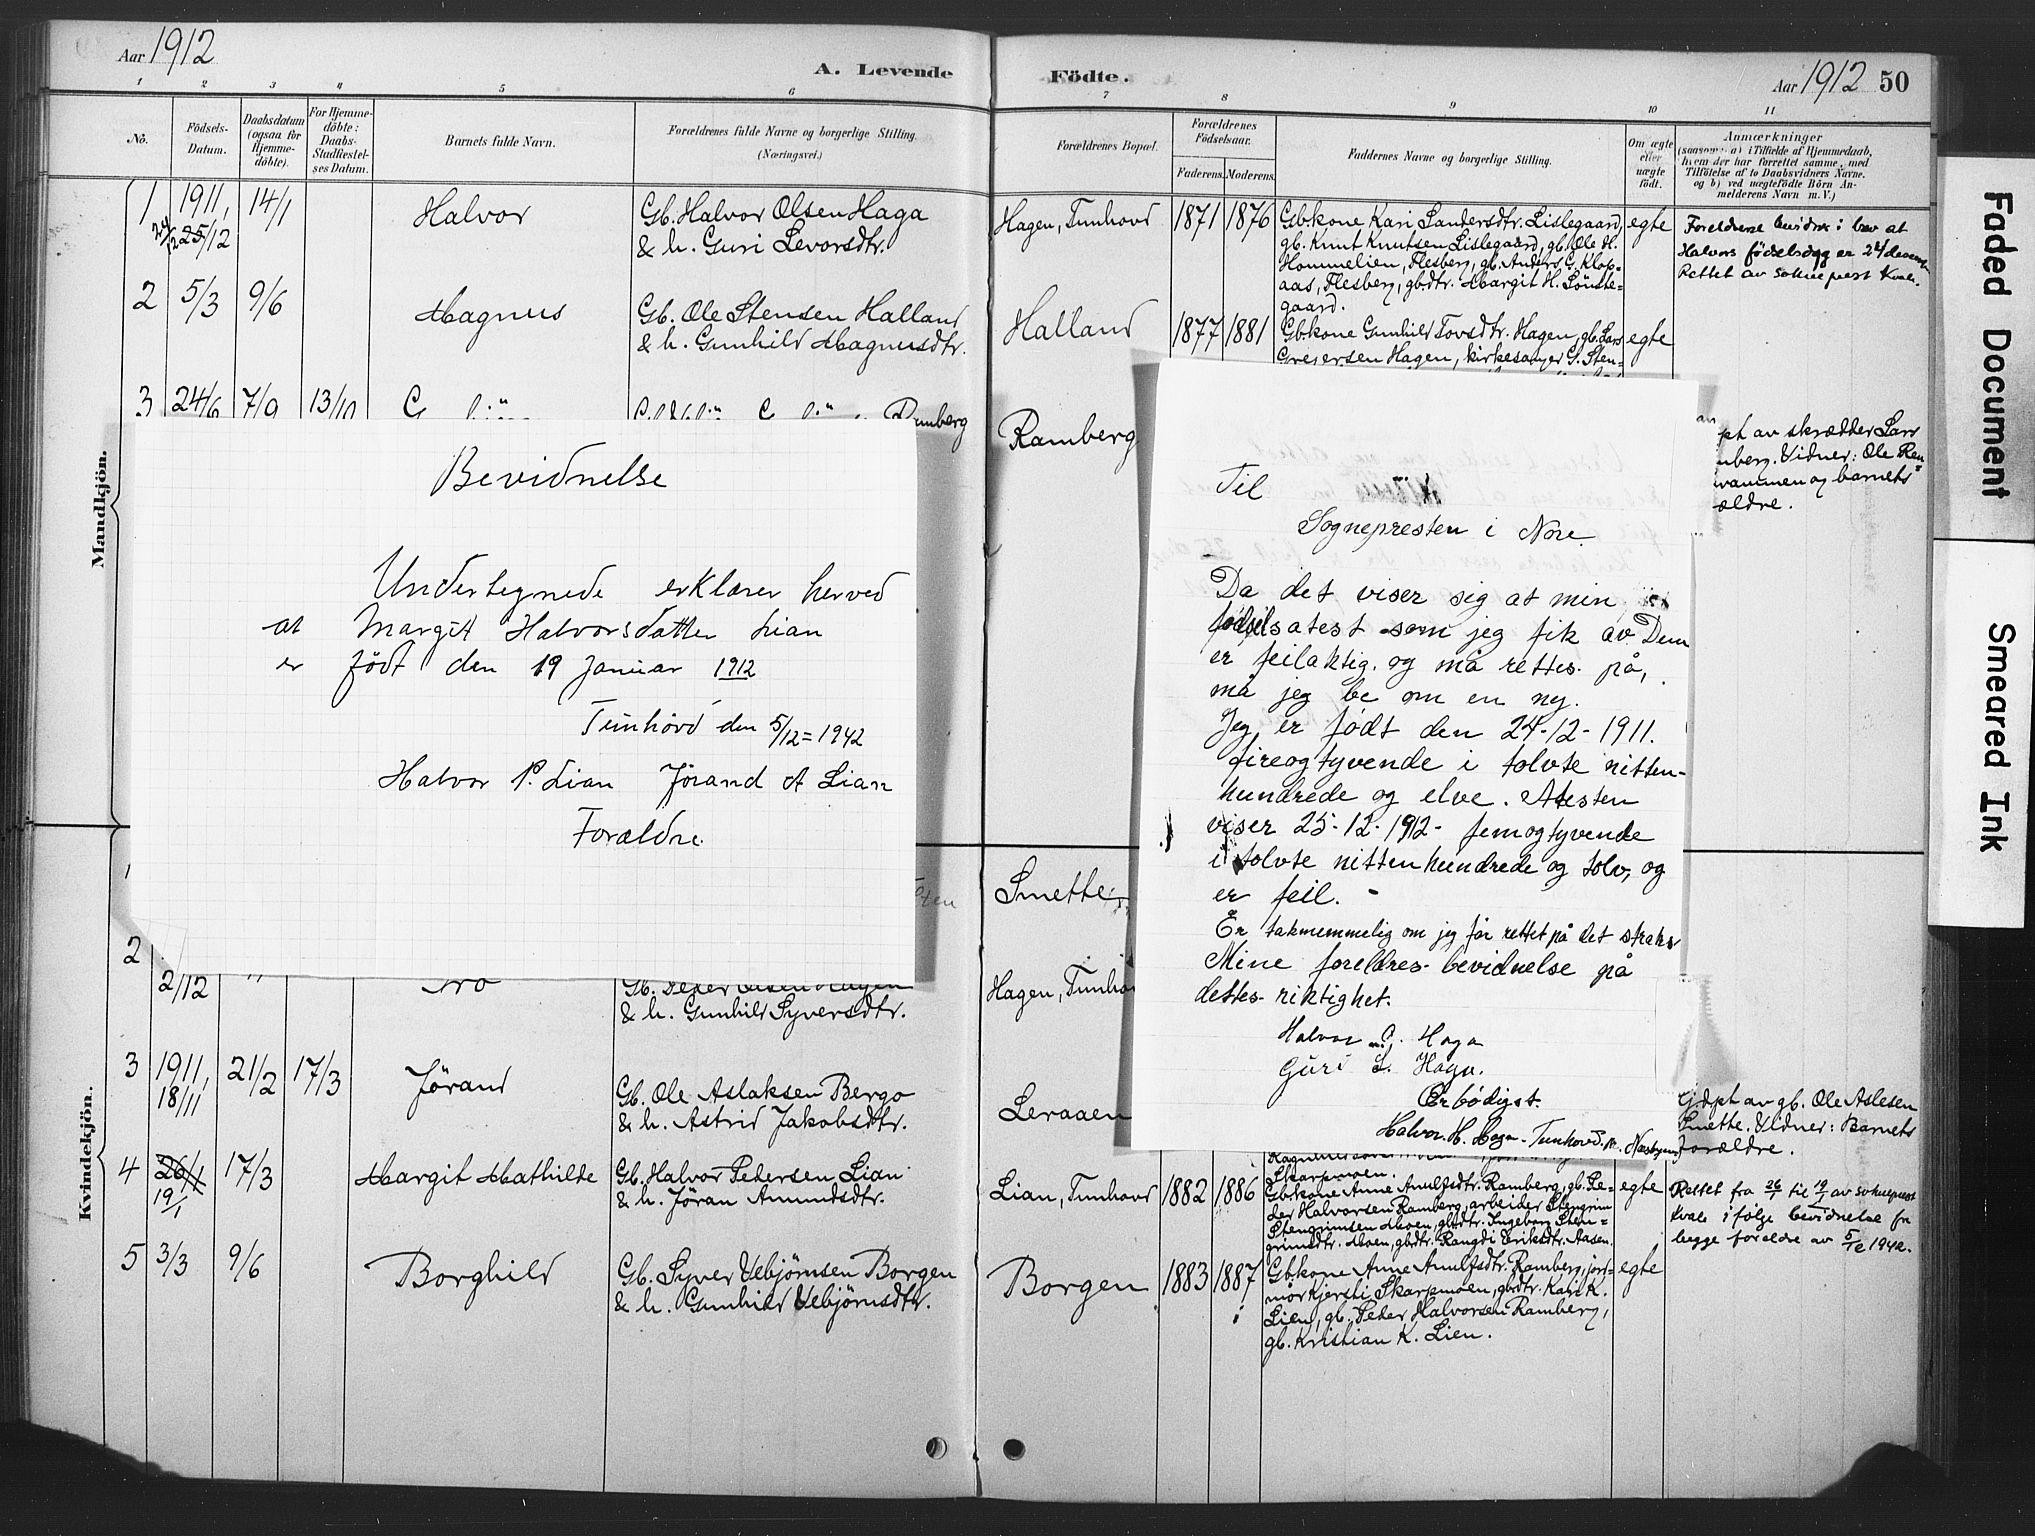 Aar 1912
A. Levende
Födte.
Aar 1912 50
1 2 3 4 5 6 7 8 9 10 11
No.
Födsels-
Datum.
Daabsdatum
(ogsaa for
Hjemme-
döbte).
For Hjemme-
döbte:
Daabs-
Stadfæstel-
ses Datum.
Barnets fulde Navn.
Forældrenes fulde Navne og borgerlige Stilling.
(Næringsvei.)
Forældrenes Bopæl.
Forældrenes
Födselsaar.
Faderens. Moderens.
Faddernes Navne og borgerlige Stilling.
Om ægte
eller
uægte
født.
Anmærkninger
(saasom: a) i Tilfælde af Hjemmedaab,
hvem der har forrettet samme, med
Tilföielse af to Daabsvidners Navne.
og b) ved uægtefödte Börn An-
melderens Navn m. V.)
Mandkjön.
1
1911,
24/12 25/12
14/1
Halvor
Gb. Halvor Olsen Haga
& h. Guri Levorsdtr.
Hagen, Tunhovd
1871 1876
Gbkone Kari Sandersdtr. Lislegaard,
gb. Knut Knutsen Lislegaard, gb. Ole H.
Hommelien, Flesberg, gb. Anders G. Klop-
aas, Flesberg, gbdtr. Margit H. Sönste-
gaard.
egte
Foreldrene bevidner i brev at
Halvors födselsdag er 24 decem
Rettet av sokneprest Kvale.
2
5/3
9/6
Magnus
Gb. Ole Stensen Halland
& h. Gunhild Magnusdtr.
Halland
1877 1881
Gbkone Gunhild Tovsdtr. Hagen, gb. Lars
Gregersen Hagen, kirkesanger G. Sten-
egte
3
24/6
7/9
13/10
Ramberg
Ramberg
pt av skrædder Lars
mberg. Vidner: Ole Ren
vammen og barnets
ældre.
Bevidnelse
Undertegnede erklærer herved
at Margit Halvorsdatter Lian
er född den 19 Januar 1912
Tunhovd den 5/12 = 1942
Halvor P. Lian Jörand A Lian
Forældre.
Til
Sognepresten i Nore.
Da det viser sig at min
fødselsatest som jeg fik av Dem
er feilaktig. og må rettes på,
må jeg be om en ny.
Jeg er født den 24-12-1911.
fireogtyvende i tolvte nitten-
hundrede og elve. Atesten
viser 25-12-1912- femogtyvende
i tolvte nittenhundrede og tolv, og
er feil. -
Er takmemmelig om jeg får rettet på det straks
Mine foreldres bevidnelse på
dettes riktighet.
Halvor O. Haga
Guri L. Haga.
Erbödigst.
Halvor H. Haga - Tunhovd.
Kvindekjön.
Smette
2
2/12
Gb. Peder Olsen Hagen
& h. Gunhild Syversdtr.
Hagen, Tunho
3
1911,
18/11
21/2
17/3
Jørand
Gb. Ole Aslaksen Bergo
& h. Astrid Jakobsdtr.
Leraaen
Hjdpt av gb. Ole Aslesen
Smette. Vidner: Barnets
forældre.
Skarpmoen.
4
26/1
19/1
17/3
Margit Mathilde
Gb. Halvor Pedersen Lian
& h. Jöran Amundsdtr.
Lian, Tunhovd
1882 1886
Gbkone Anne Arnulfsdtr. Ramberg, gb. Pe-
der Halvorsen Ramberg, arbeider Stengrim
Stengrimsen Moen, gbdtr. Ingeborg Sten-
grimsdtr. Moen, gbdtr. Rangdi Eriksdtr. Aasen.
egte
Rettet fra 26/1 til 19/1 av sokneprest
Kvale i følge bevidnelse fra
begge foreldre av 5/12 1942.
5
3/3
9/6
Borghild
Gb. Syver Vebjörnsen Borgen
& h. Gunhild Vebjörnsdtr.
Borgen
1883 1887
Gbkone Anne Arnulfsdtr. Ramberg, jord-
mor Kjersti Skarpmoen, gbdtr. Kari K.
Lien, gb. Peder Halvorsen Ramberg,
gb. Kristian K. Lien.
egte
Faded Document
Smeared Ink